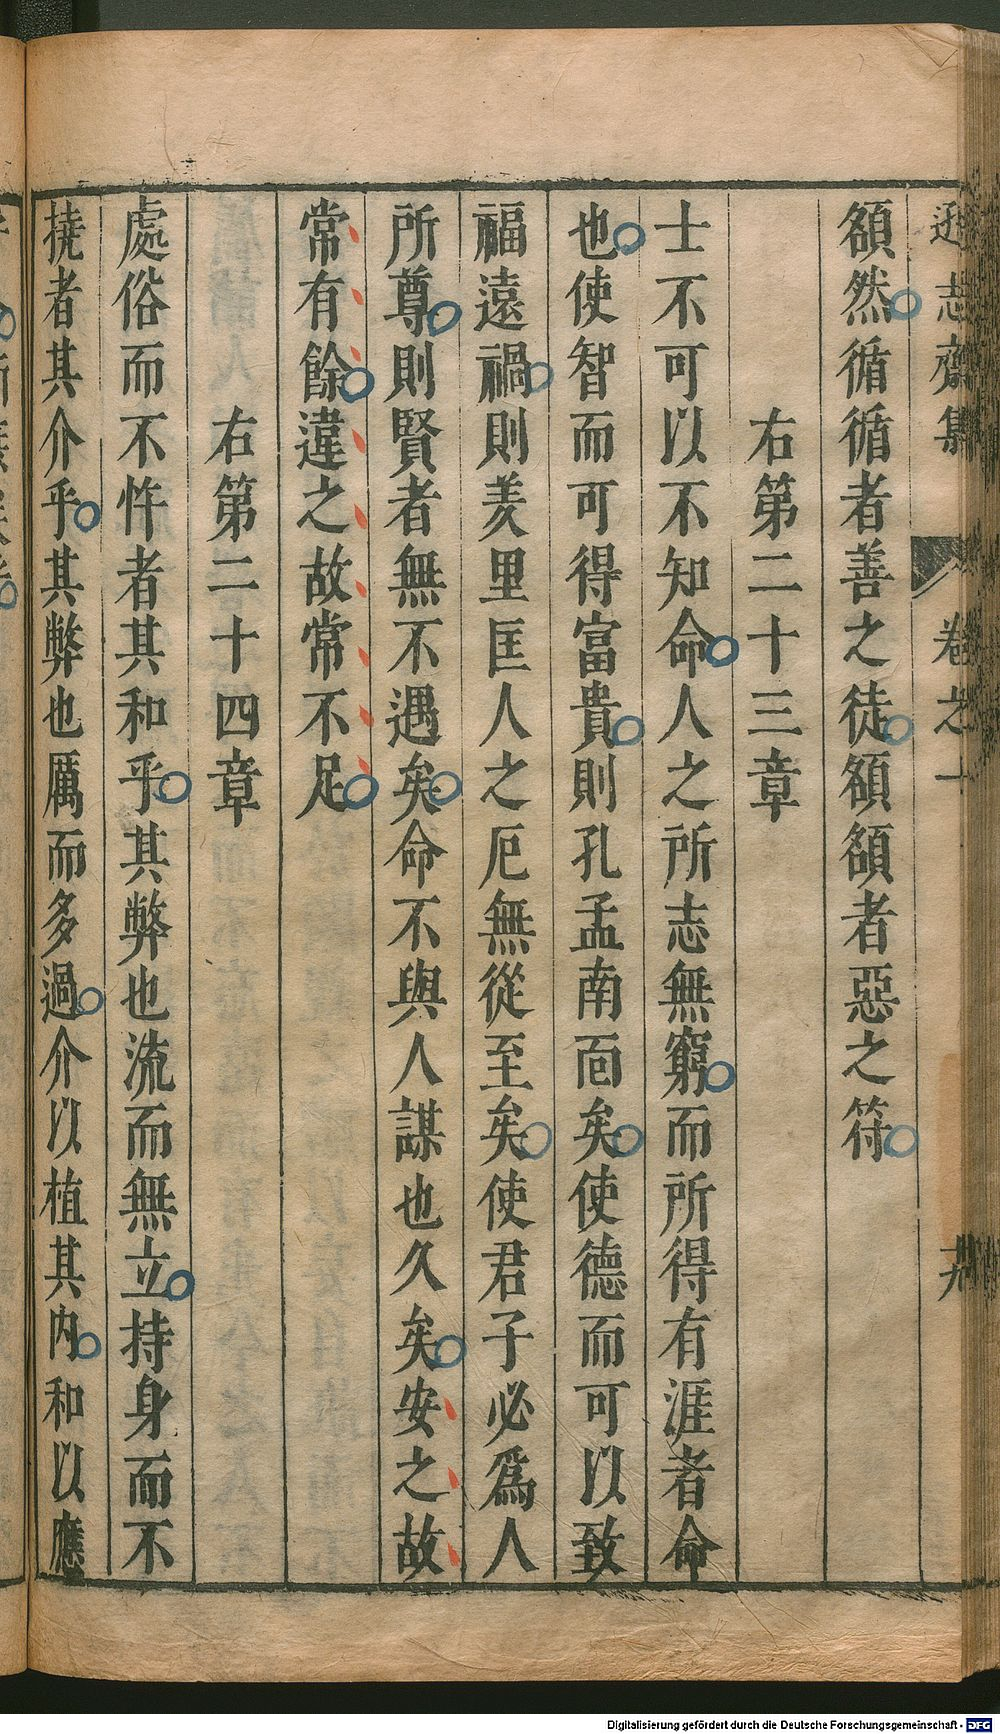 遜志齋集 卷之一 十九
額然循循者善之徒額額者惡之符
右第二十三章
士不可以不知命人之所志無窮而所得有涯者命
也使智而可得富貴則孔孟南面矣使德而可以致
福遠禍則羑里匡人之厄無從至矣使君子必爲人
所尊則賢者無不遇矣命不與人謀也久矣安之故
常有餘違之故常不足
右第二十四章
處俗而不忤者其和乎其弊也流而無立持身而不
撓者其介乎其弊也厲而多過介以植其內和以應
Digitalisierung gefördert durch die Deutsche Forschungsgemeinschaft - DFG